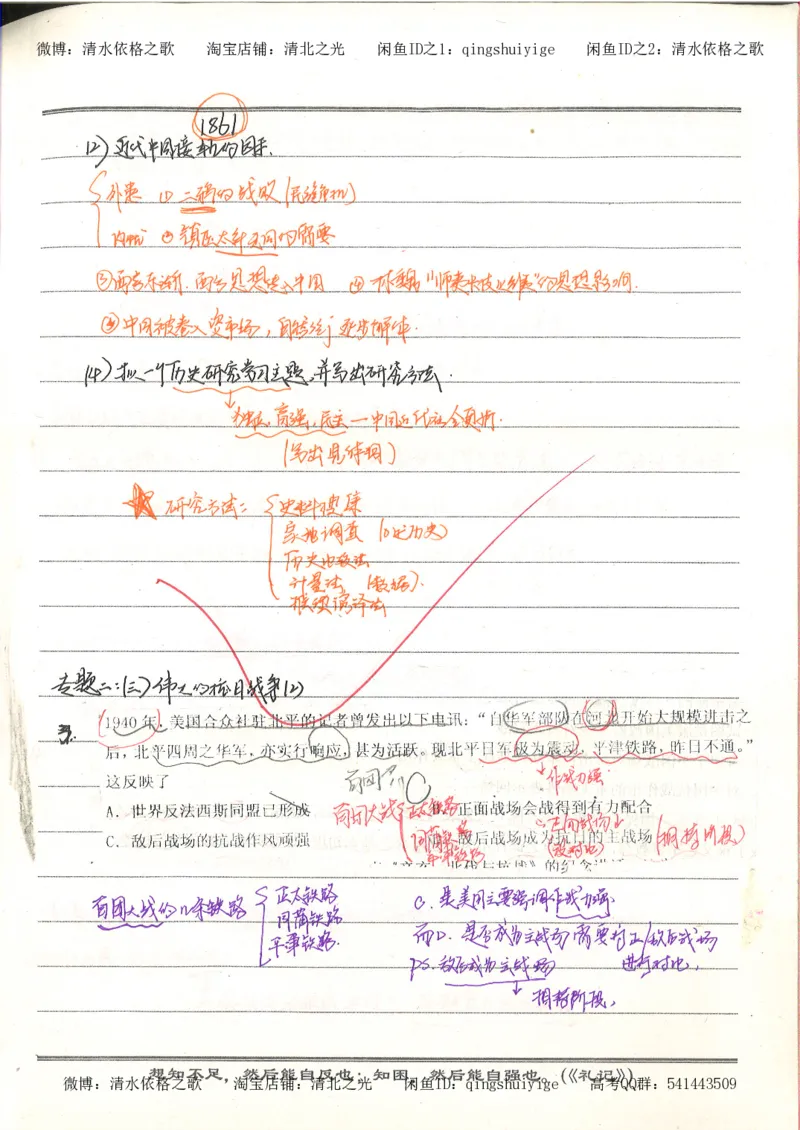 微博：清水依格之歌 淘宝店铺：清北之光 闲鱼ID之1：qingshuiyige 闲鱼ID之2：清水依格之歌
1861
(2) 近代中国接轨的因素.
外患 ① 二鸦的战败 (民族危机)
内忧 ② 镇压太平天国的需要
③ 西方东渐. 西方思想传入中国 ④ 林魏"师夷长技以制夷"的思想影响.
中国被卷入资市场, 自给经济逐步解体.
(4) 拟一个历史研究学习主题, 并写出研究方法.
独立, 富强, 民主 — 中国近代社会
(写出具体词)
研究方法:
史料搜集
实地调查 (口述历史)
历史比较法
计量法 (数据).
推理演译法
专题二: (三) 伟大的抗日战争(2)
3. 1940年，美国合众社驻北平的记者曾发出以下电讯：“自华军部队在河北开始大规模进击之
后，北平四周之华军，亦实行响应，甚为活跃。现北平日军极为震动，平津铁路，昨日不通。”
这反映了
百团
C
作战力强.
A．世界反法西斯同盟已形成 正面战场会战得到有力配合
C．敌后战场的抗战作风顽强 敌后战场成为抗日的主战场
百团大战 正太铁路 同蒲铁路 平津铁路
(相持阶段)
百团大战的几条铁路
正太铁路
同蒲铁路
平津铁路.
C. 是美国主要强调作战力强.
而D. 是否成为主战场需要将正/敌后战场
进行对比.
PS. 敌后成为主战场
相持阶段.
想知不足，然后能自反也；知困，然后能自强也。(《礼记》)
微博：清水依格之歌 淘宝店铺：清北之光 闲鱼ID：qingshuiyige 高考QQ群：541443509